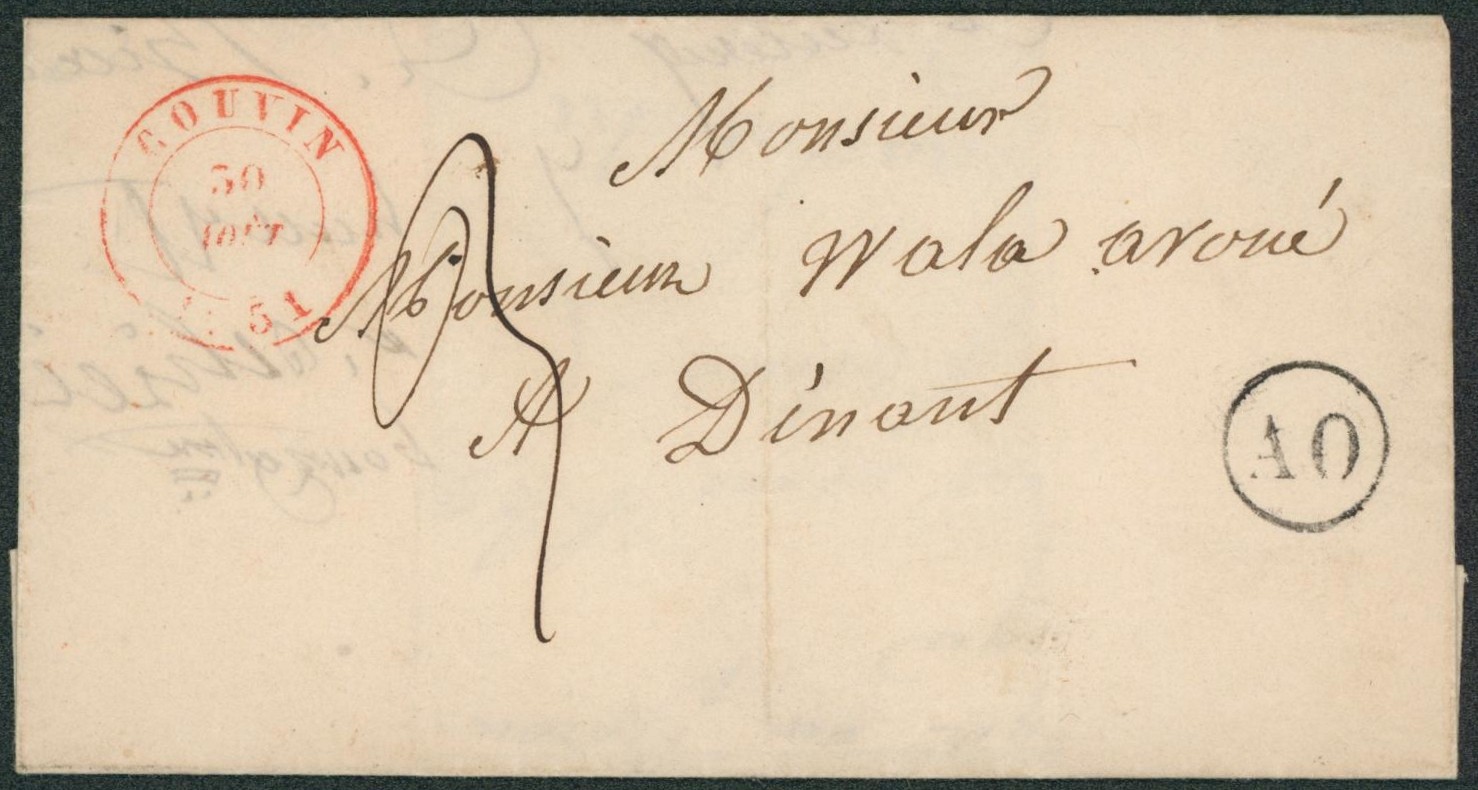 COUVIN
30
AOUT
51
Monsieur
Monsieur Wala avoué
A Dinant
AO